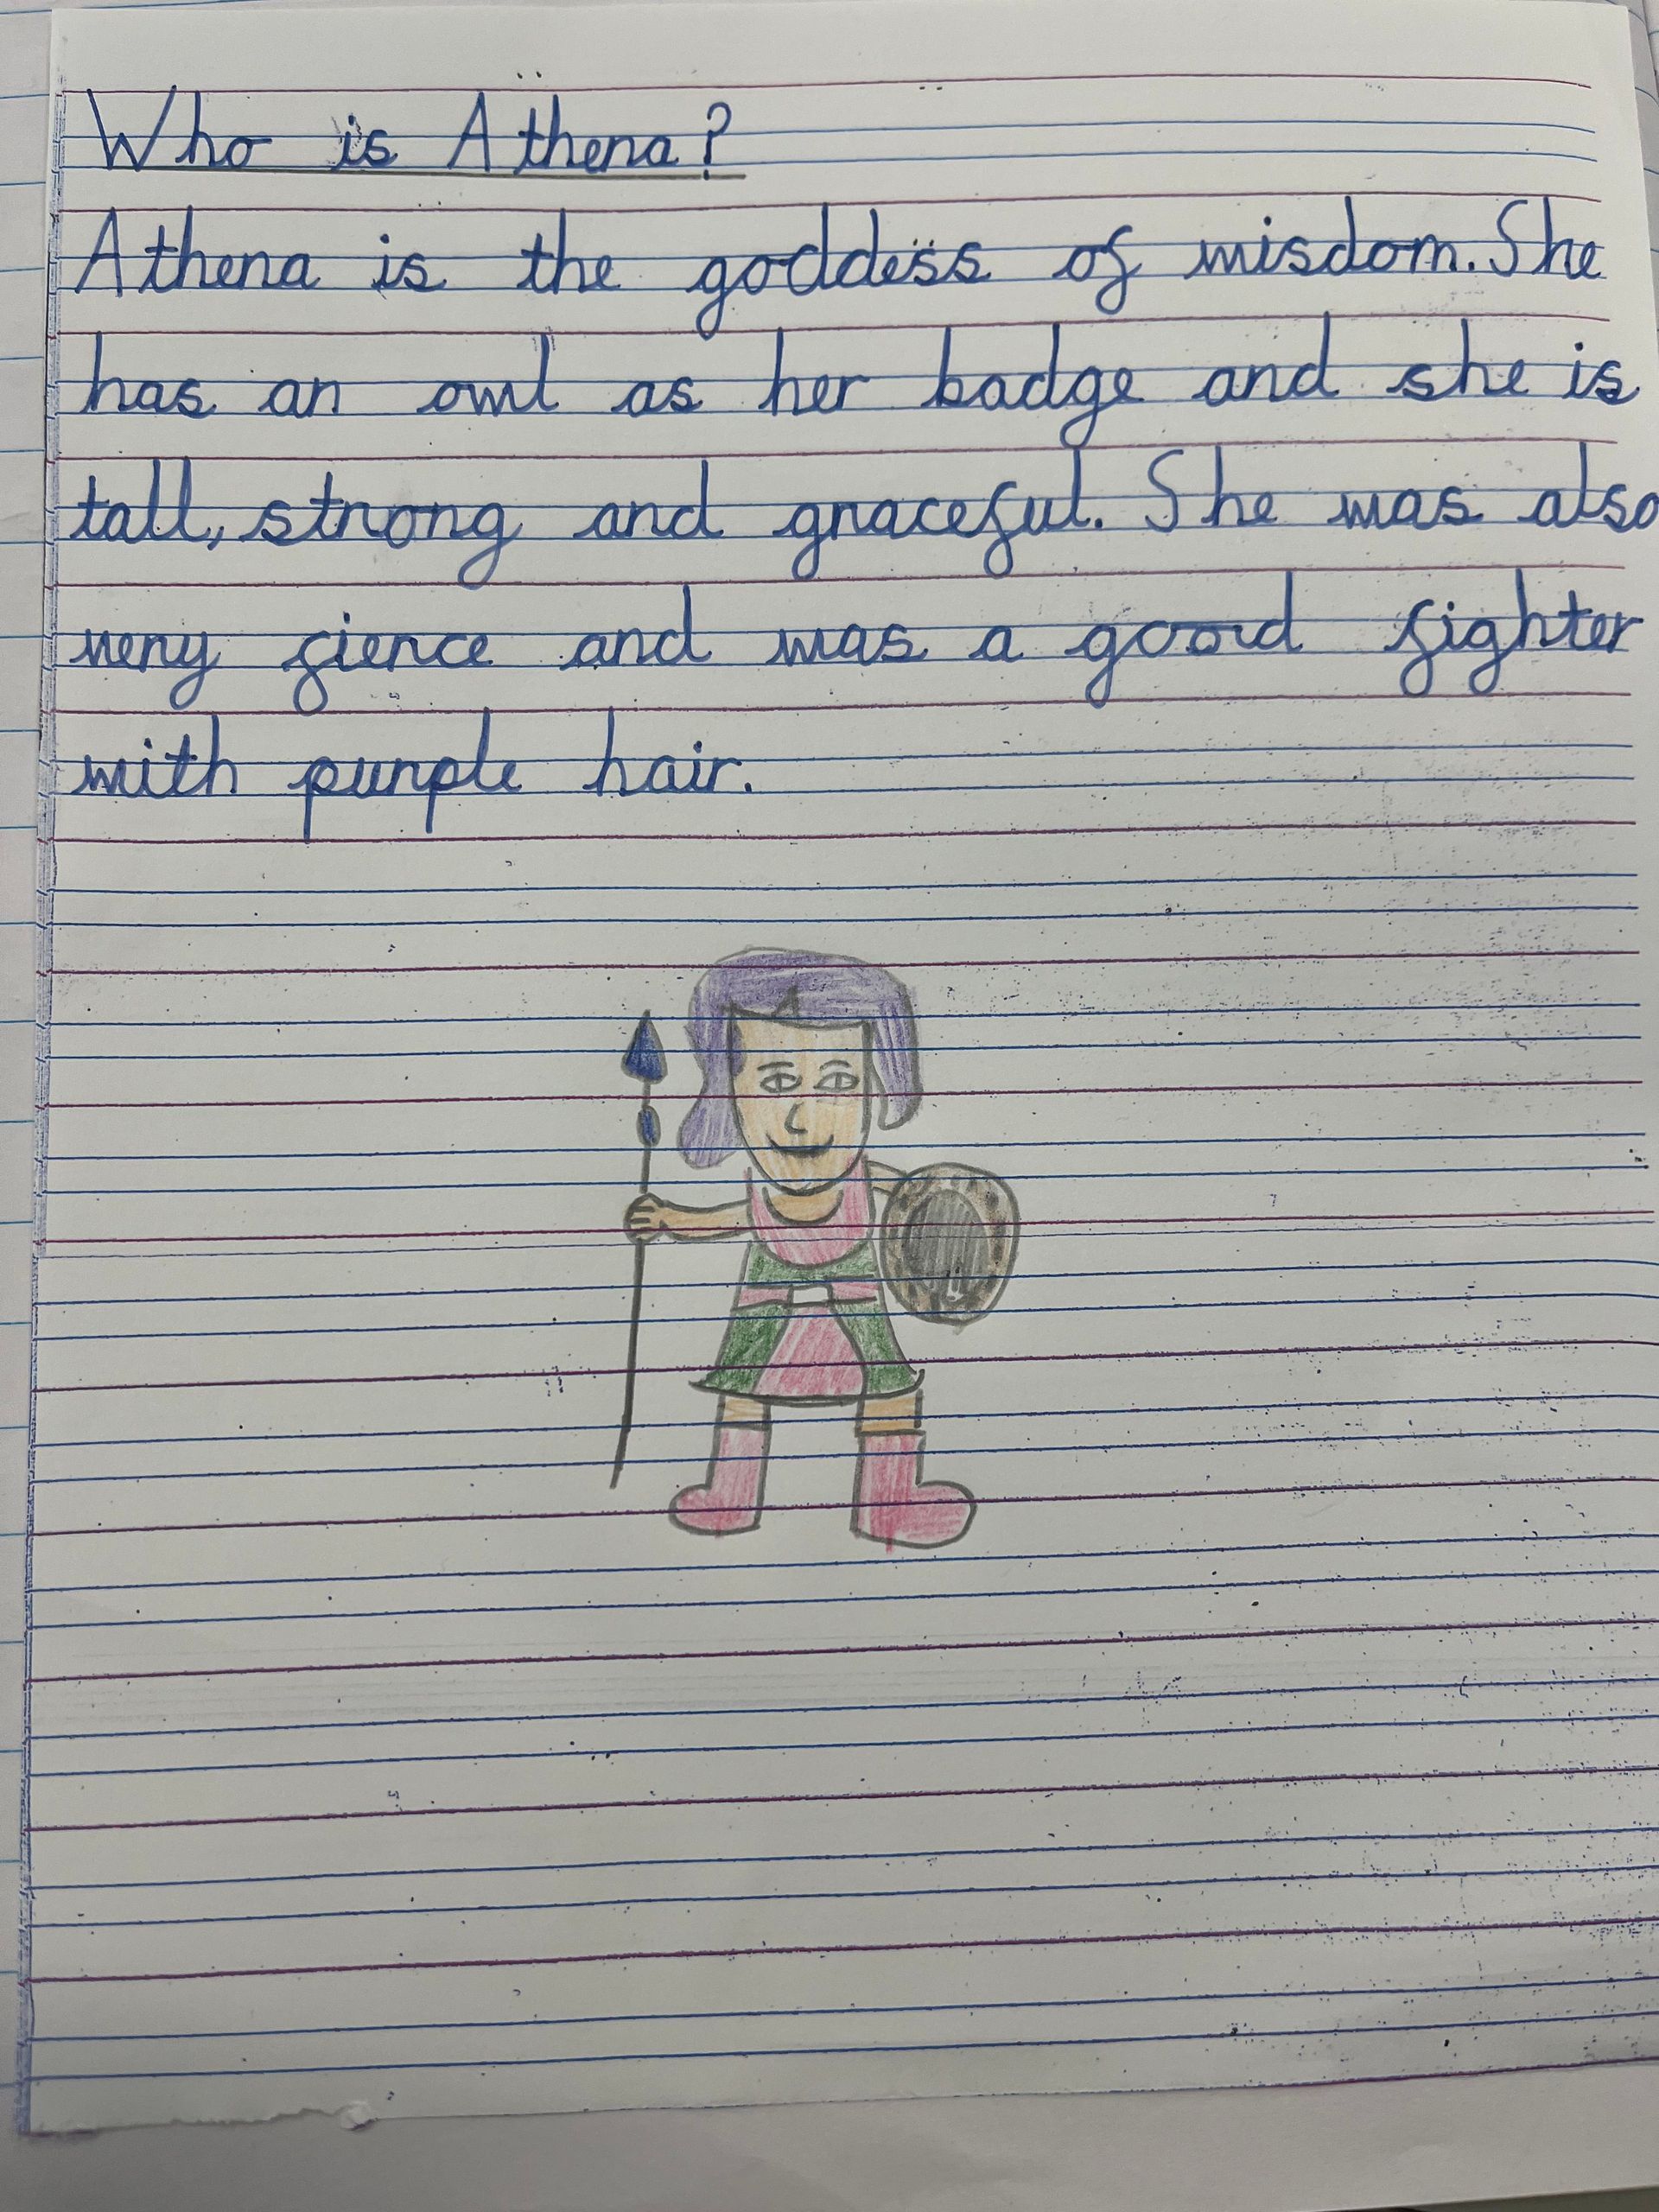 Who is Athena?
Athena is the goddess of wisdom. She
has an owl as her badge and she is
tall, strong and graceful. She was also
very fierce and was a good fighter
with purple hair.